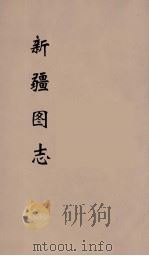 新疆图志
mtoou.info